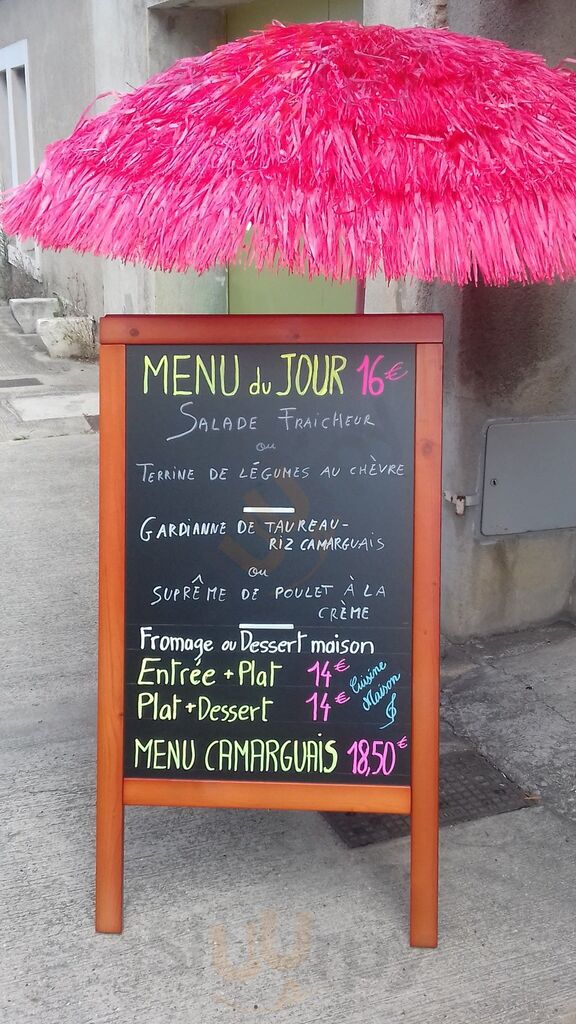 MENU du JOUR 16€
SALADE FRAICHEUR
ou
TERRINE DE LÉGUMES AU CHÈVRE
GARDIANNE DE TAUREAU-
RIZ CAMARGUAIS
ou
SUPRÊME DE POULET À LA
CRÈME
Fromage ou Dessert maison
Entrée + Plat 14€
Plat + Dessert 14€
Cuisine
Maison
MENU CAMARGUAIS 18,50€